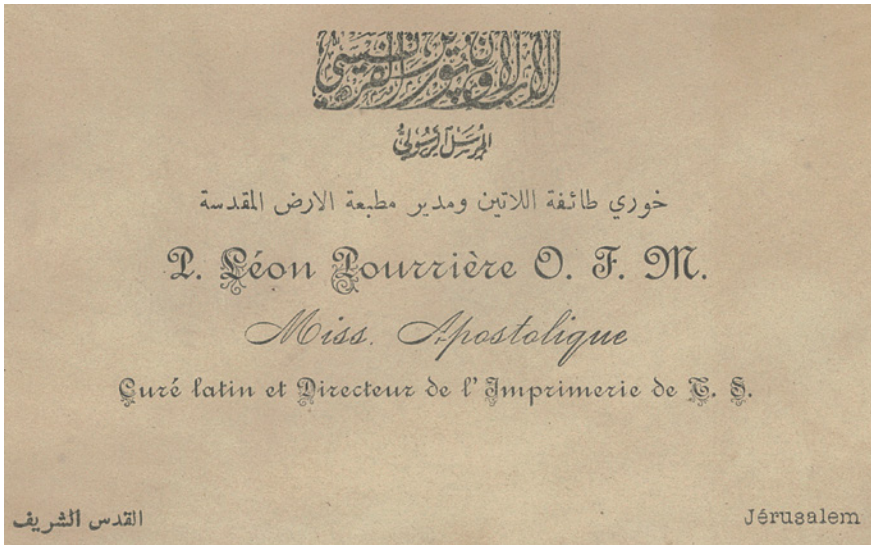 الاب لاون پوريير الفرنسيسي
المرسل الرسولي
خوري طائفة اللاتين ومدير مطبعة الارض المقدسة
P. Léon Pourrière O. F. M.
Miss. Apostolique
Curé latin et Directeur de l'Imprimerie de T. S.
القدس الشريف
Jérusalem